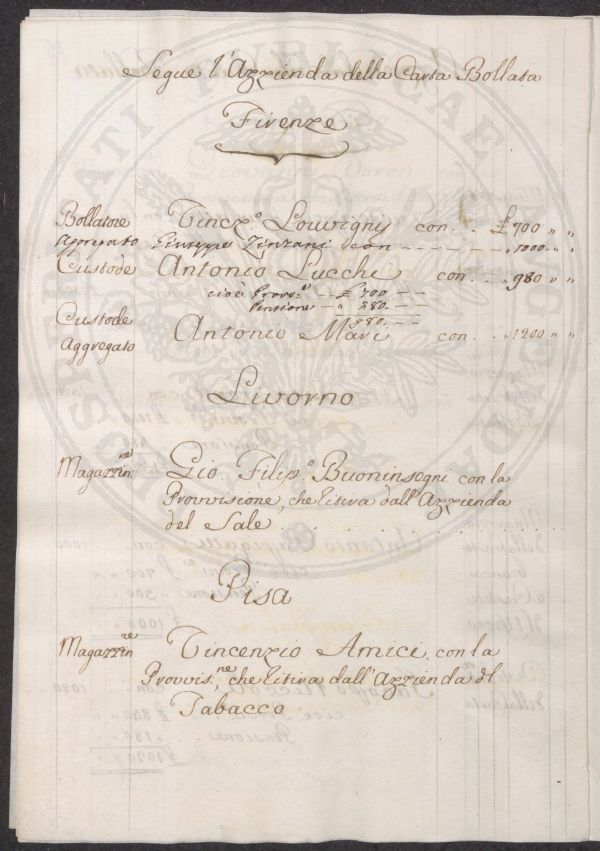 Segue l'Azzienda della Carta Bollata
Firenze
Bollatore Vincz.º Louvigny con . . £ 700 " "
Aggregato Giuseppe Zinzani con - - - - - - " 1000 - "
Custode Antonio Lucchi con . . " 980 " "
cioè Provv.e - - £ 700 - -
Pensione - " 280 - -
980 - -
Custode Aggregato Antonio Mari con . . " 1200 " "
Livorno
Magazzin.re Gio. Filip.º Buoninsegni con la
Provvisione, che titiva dall'Azzienda
del Sale . . . . . . . . .
Pisa
Magazzin.re Vincenzio Amici con la
Provvis.ne, che titiva dall'Azzienda dl
Tabacco